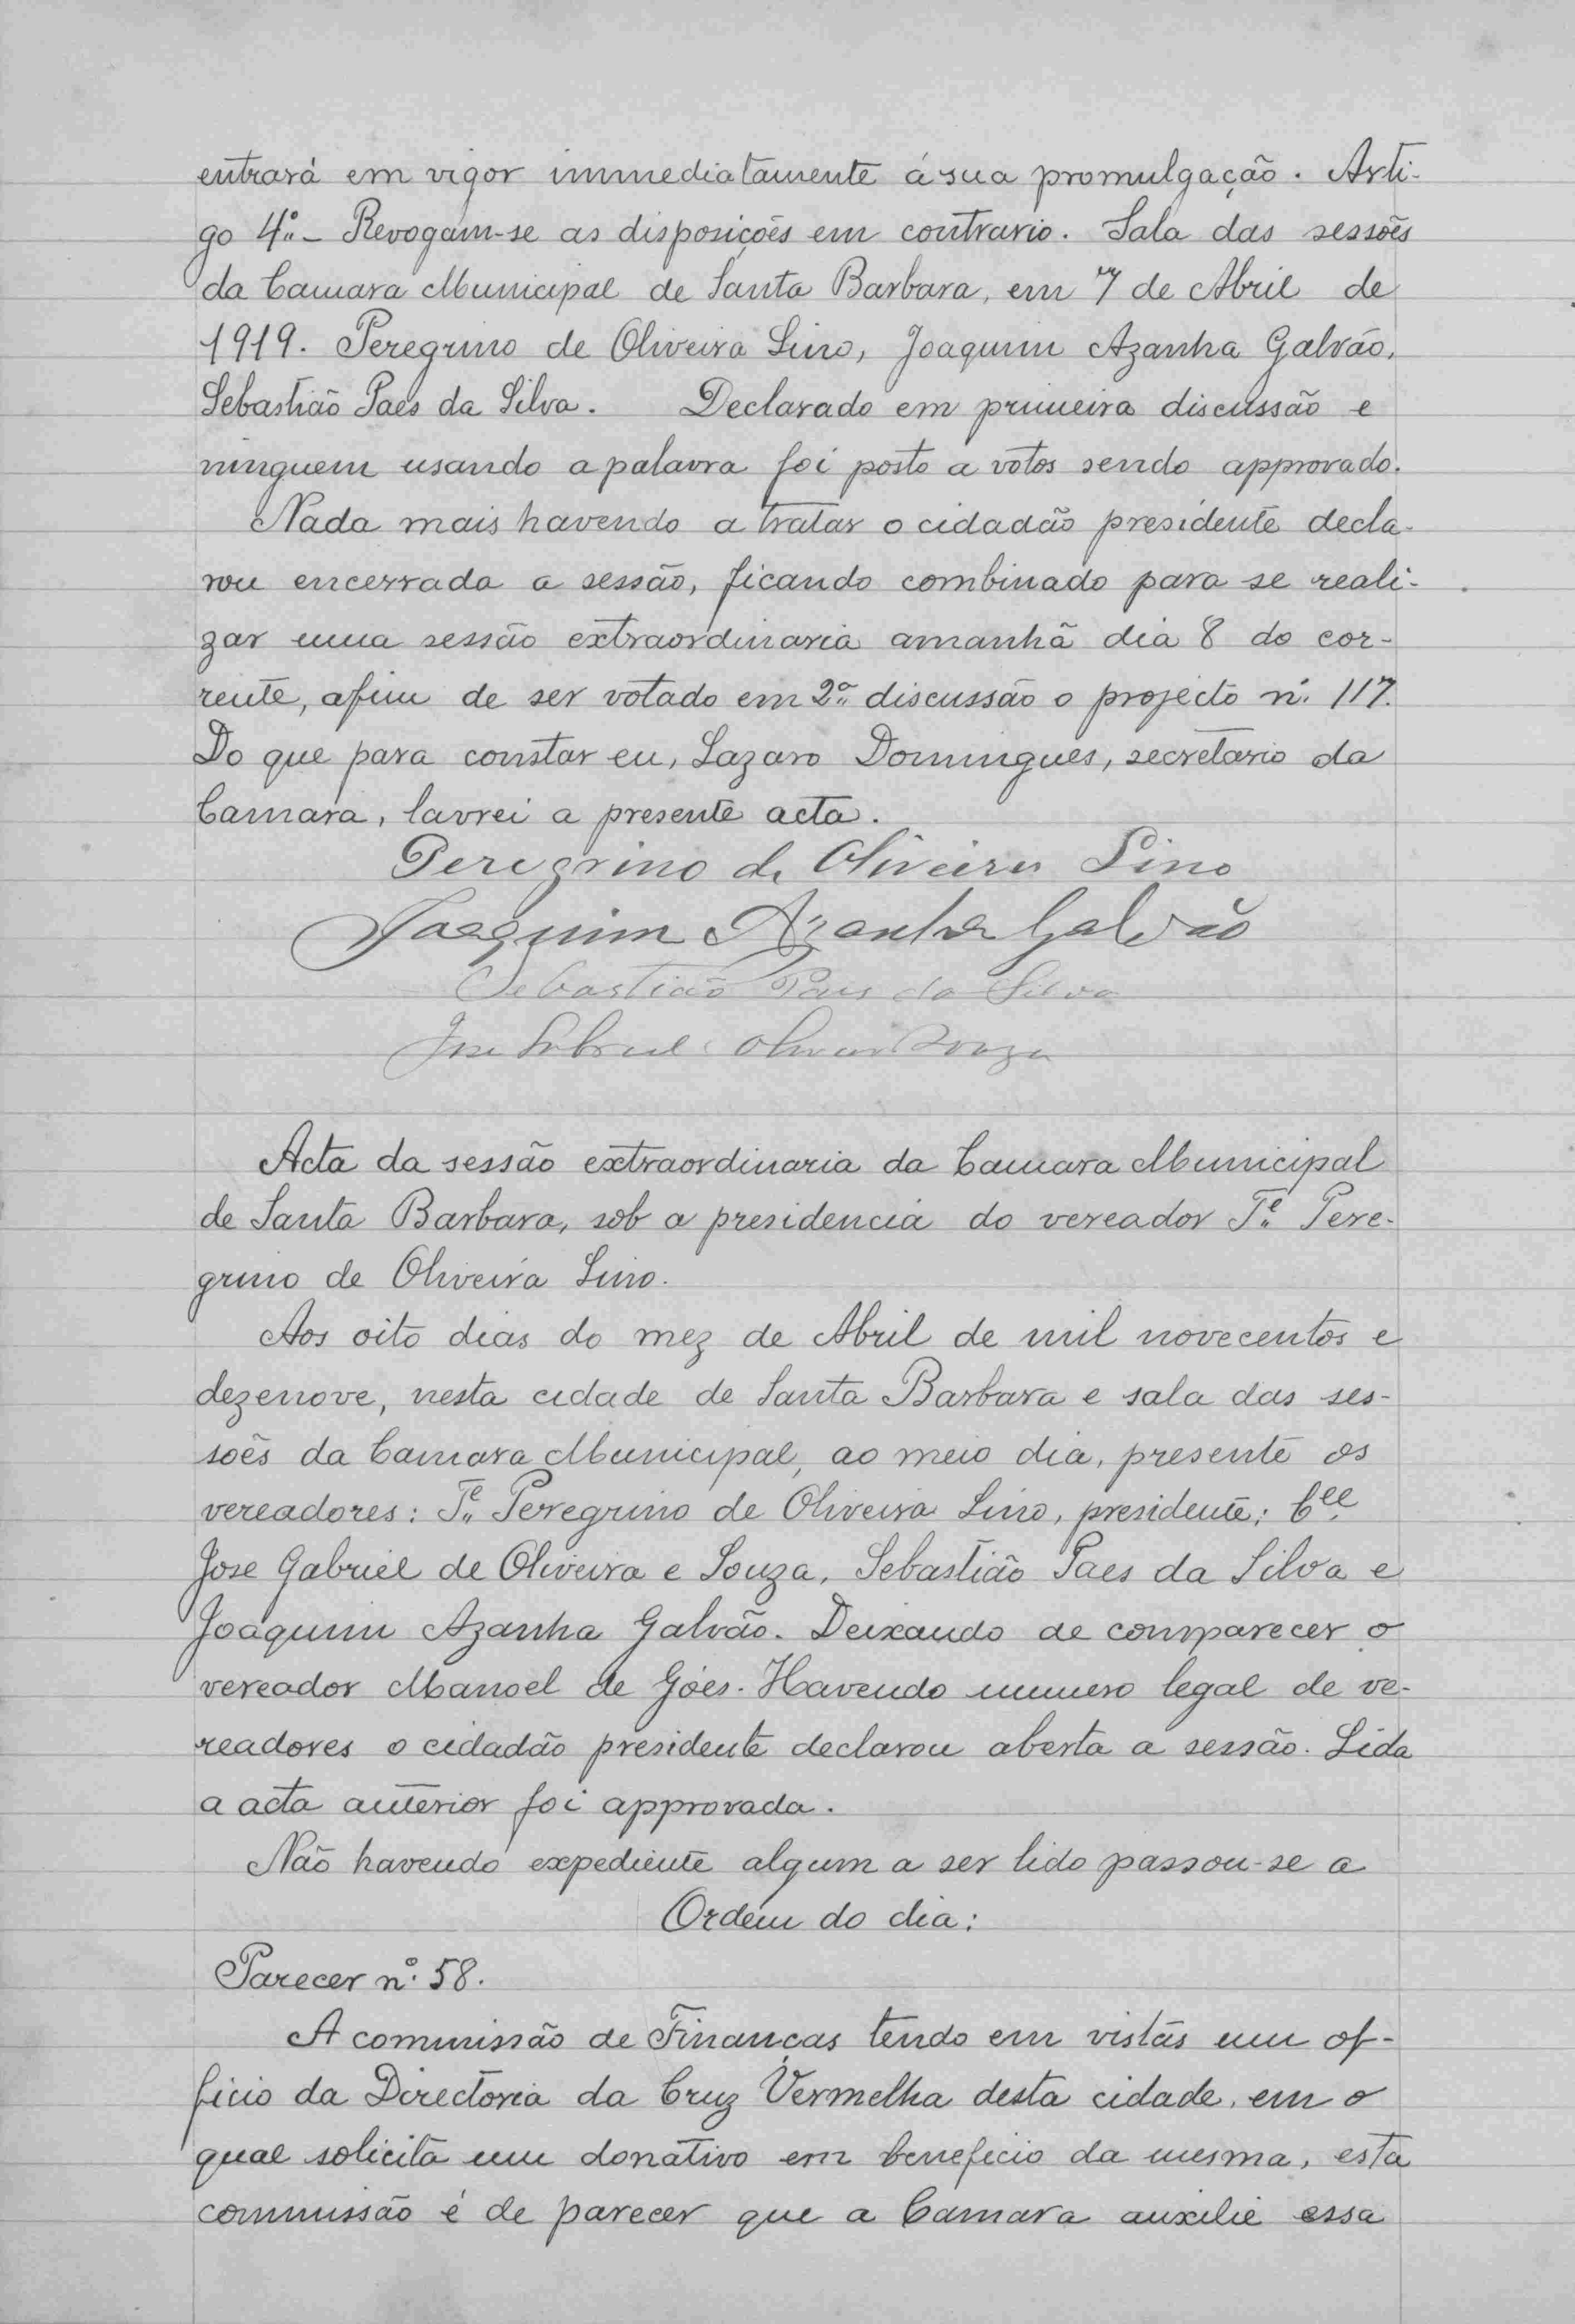 entrará em vigor immediatamente á sua promulgação. Arti-
go 4º - Revogam-se as disposições em contrario. Sala das sessões
da Camara Municipal de Santa Barbara, em 7 de Abril de
1919. Peregrino de Oliveira Lino, Joaquim Azanha Galvão,
Sebastião Paes da Silva. Declarado em primeira discussão e
ninguem usando a palavra foi posto a votos sendo approvado.
Nada mais havendo a tratar o cidadão presidente decla-
rou encerrada a sessão, ficando combinado para se reali-
zar uma sessão extraordinaria amanhã dia 8 do cor-
rente, afim de ser votado em 2ª discussão o projecto nº 117.
Do que para constar eu, Lazaro Domingues, secretario da
Camara, lavrei a presente acta.
Peregrino de Oliveira Lino
Joaquim Azanha Galvão
Sebastião Paes da Silva
Jose Gabriel Oliveira Souza
Acta da sessão extraordinaria da Camara Municipal
de Santa Barbara, sob a presidencia do vereador Tᵉ Pere-
grino de Oliveira Lino.
Aos oito dias do mez de Abril de mil novecentos e
dezenove, nesta cidade de Santa Barbara e sala das ses-
soẽs da Camara Municipal, ao meio dia, presente os
vereadores: Tᵉ Peregrino de Oliveira Lino, presidente; Cᵉˡ
Jose Gabriel de Oliveira e Souza, Sebastião Paes da Silva e
Joaquim Azanha Galvão. Deixando de comparecer o
vereador Manoel de Góes. Havendo numero legal de ve-
readores o cidadão presidente declarou aberta a sessão. Lida
a acta anterior foi approvada.
Não havendo expediente algum a ser lido passou-se a
Ordem do dia:
Parecer nº 58.
A commissão de Finanças tendo em vistas um of-
ficio da Directoria da Cruz Vermelha desta cidade, em o
qual solicita um donativo em beneficio da mesma, esta
commissão é de parecer que a Camara auxilie essa